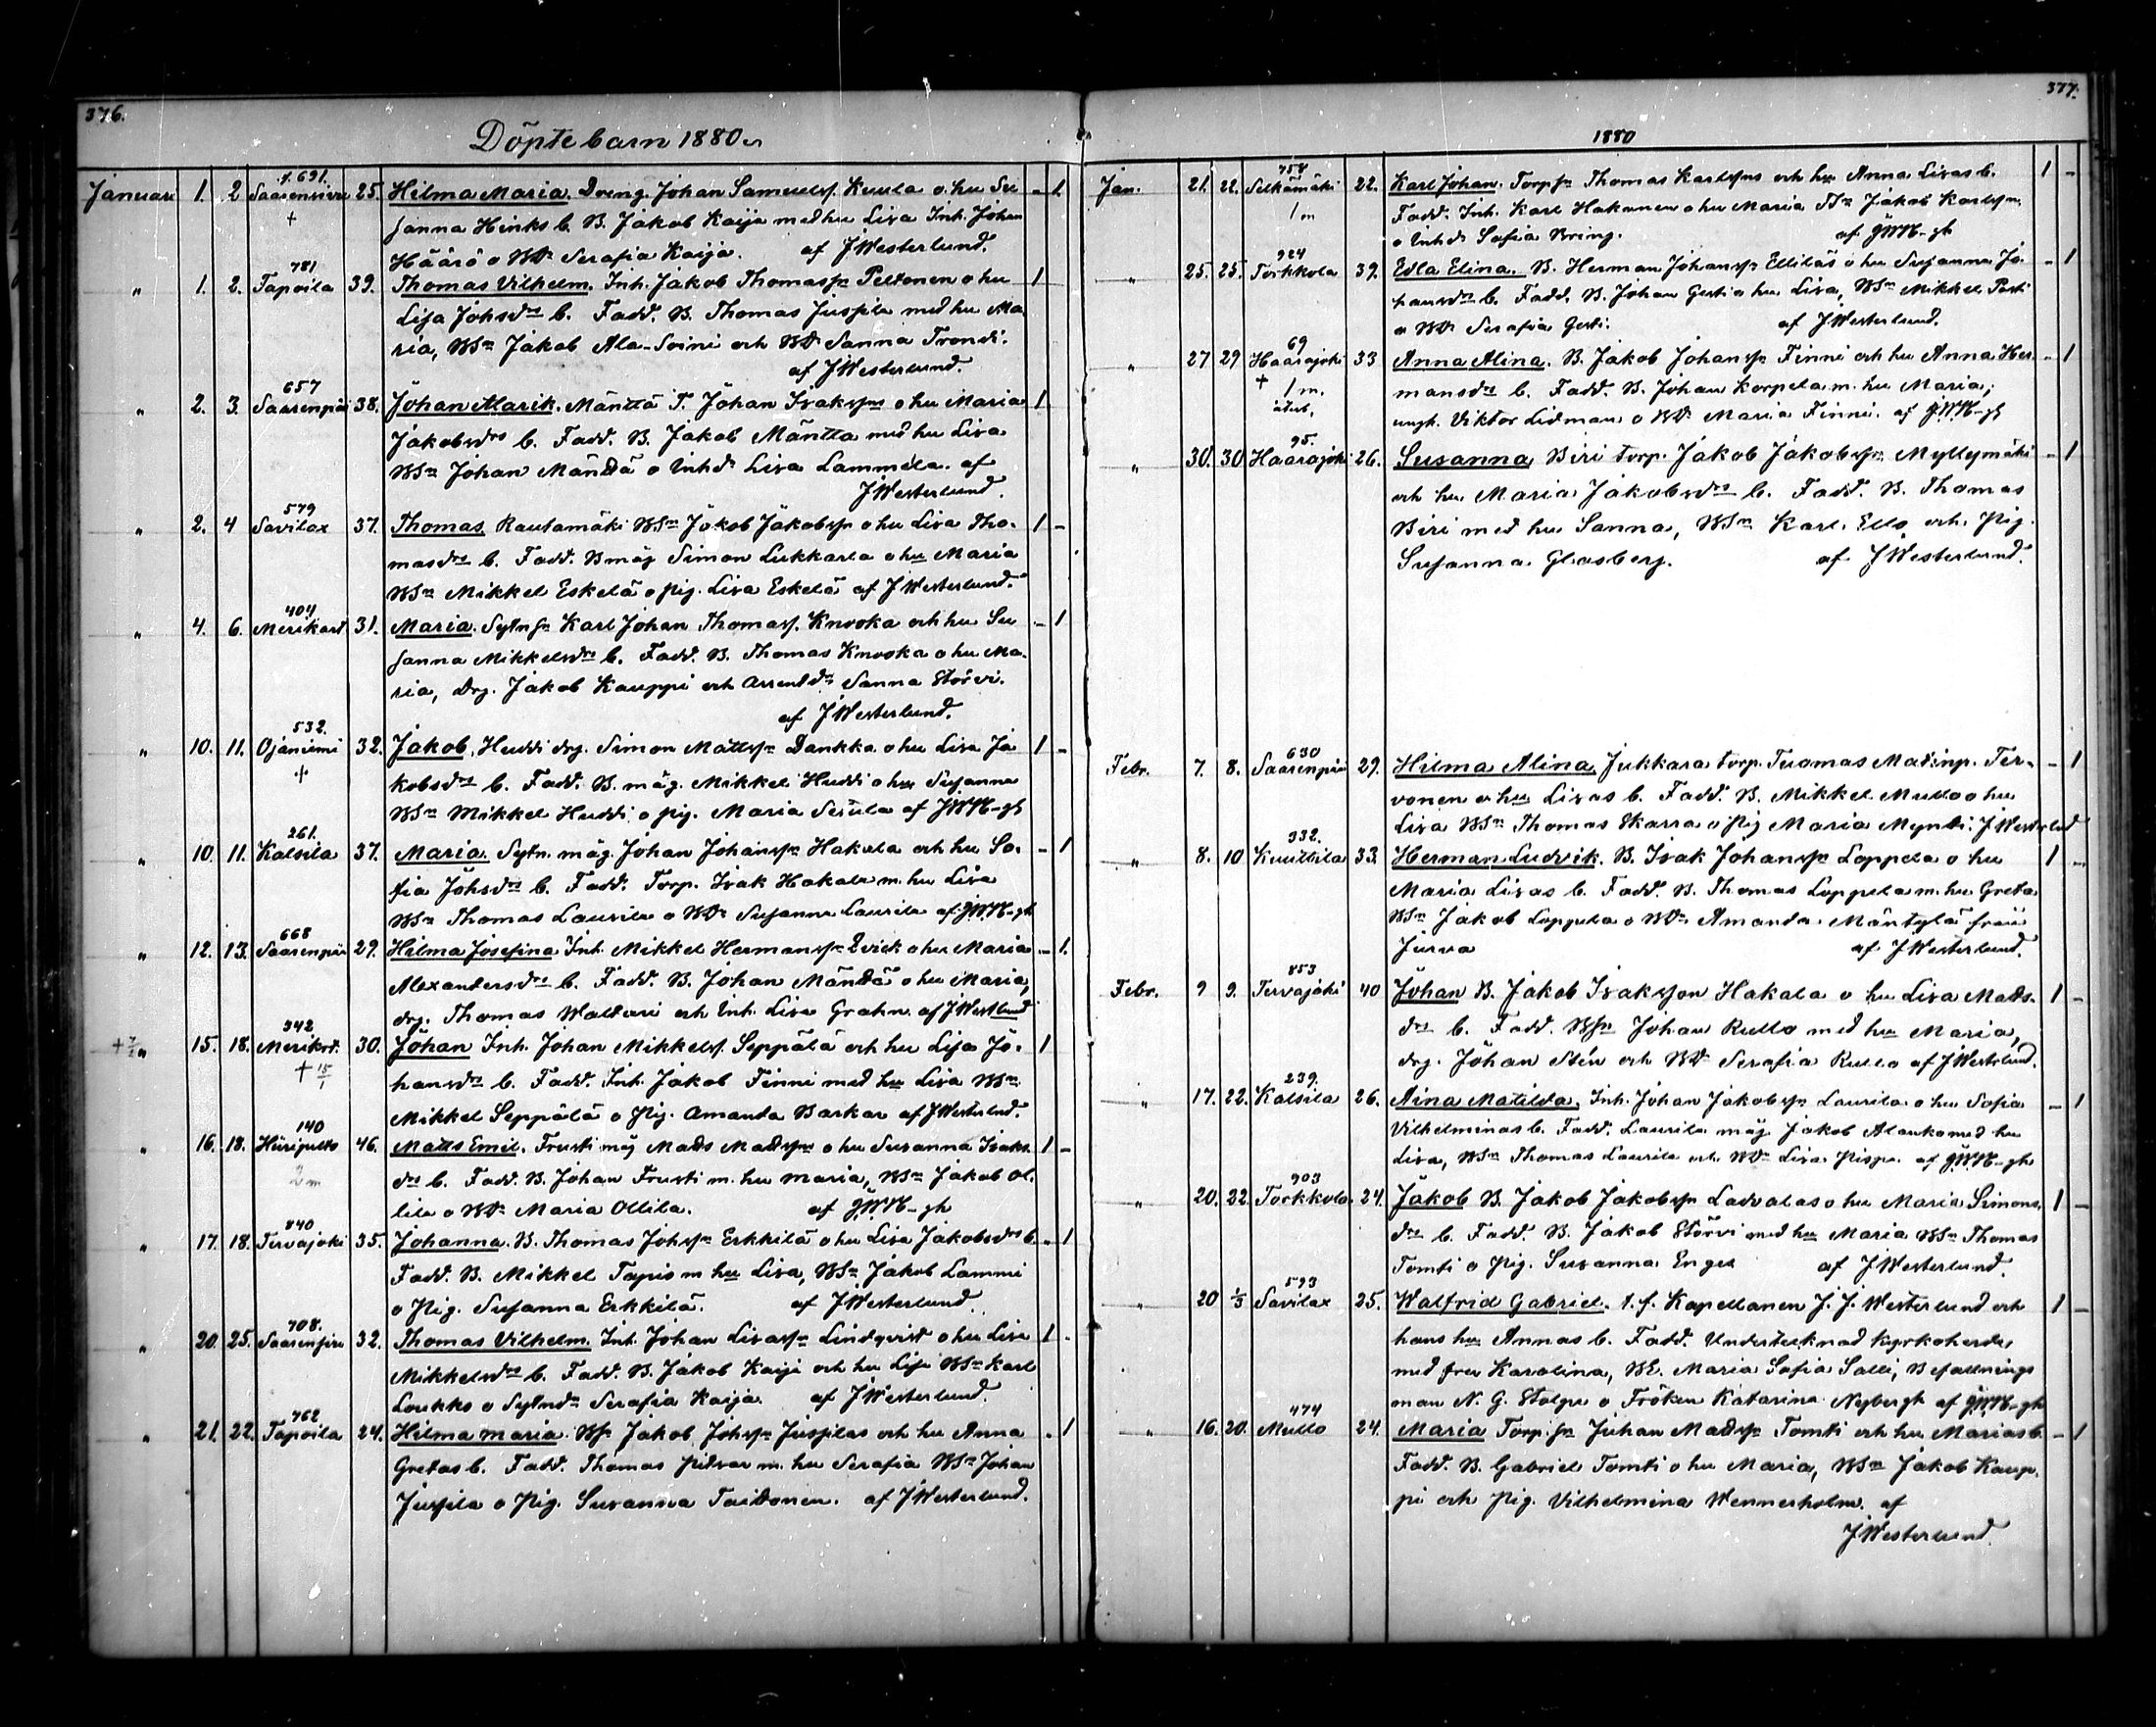 376.
Döpte barn 1880
f. 691.
Januari 1. 2 25. Hilma Maria. Dreng. Johan Samuelsf. Kuula o. hu Su
+ sanna Hinks b. B. Jakob Kaija med hu Lisa Inh. Johan
Häärö o BDr Serafia Kaija. af JWesterlund.
781
" 1. 2. Tapoila 39. Thomas Vilhelm. Inh. Jakob Thomassn Peltonen o hu 1
Lisa Johsdrs b. Fadd. B. Thomas Juspila med hu Ma
ria, BSn Jakob Ala-Soini och BDr Sanna Trondi.
af JWesterlund.
657
" 2. 3. Saarenpää 38. Johan Alarik. Mänttä T. Johan Isakssns o hu Maria 1
Jakobsdrs b. Fadd. B. Jakob Mäntta med hu Lisa
BSn Johan Mänttä o Inhdr Lisa Lammela. af
JWesterlund.
579
" 2. 4 Savilax 37. Thomas. Rautamäki BSn Jakob Jakobssn o hu Lisa Tho- 1 -
masdrs b. Fadd. Bmåg Simon Lukkarla o hu Maria
BSn Mikkel Eskelä o pig. Lisa Eskelä af JWesterlund.
404
" 4. 6. Merikart 31. Maria. Sytn sn Karl Johan Thomass. Knooka och hu Su - 1
sanna Mikkelsdrs b. Fadd. B. Thomas Knooka o hu Ma-
ria, Drg. Jakob Kauppi och Arrenddr Sanna Störvi.
af JWesterlund.
532.
" 10. 11. Ojaniemi 32. Jakob. Huddi drg. Simon Mattssn Dankka o hu Lisa Ja 1 -
+ kobsdrs b. Fadd. B. måg. Mikkel Huddi o hu Susanna
BSn Mikkel Huddi o pig. Maria Serula af JWM-gh
261.
" 10. 11. Kalsila 37. Maria. Sytn. måg. Johan Johanssn Hakala och hu So- - 1
fia Johsdrs b. Fadd. Torp. Isak Hakala m. hu Lisa
BSn Thomas Laurila o BDr Susanna Laurila af JWM-gh
668
" 12. 13. Saarenpää 29. Hilma Josefina Inh. Mikkel Hermanssn Evick o hu Maria - 1.
Alexandersdrs b. Fadd. B. Johan Mänttä o hu Maria,
drg. Thomas Waltari och Inh. Lisa Grahn. af JWestlund
342
+ " 15. 18. Merikrt. 30. Johan Inh. Johan Mikkelsf. Seppälä och hu Lisa Jo- 1
+ 15/1 hansdrs b. Fadd. Inh. Jakob Finni med hu Lisa BSn
Mikkel Seppälä o pig. Amanda Barkar af JWesterlund.
140
" 16. 18. 46. Matts Emil. Frusti måg Matts Mattssns o hu Susanna Isaks- 1 -
2 m drs b. Fadd. B. Johan Frusti m. hu Maria, BSn Jakob Ol-
lila o BDr Maria Ollila. af JWM-gh
840
" 17. 18. Tervajoki 35. Johanna. B. Thomas Johssn Erkkilä o hu Lisa Jakobsdrs b - 1
Fadd. B. Mikkel Tapio m hu Lisa, BSn Jakob Lammi
o Pig. Susanna Erkkilä. af JWesterlund.
708.
" 20. 25. 32. Thomas Vilhelm. Inh. Johan Lisassn Lindqvist o hu Lisa 1 -
Mikkelsdrs b. Fadd. B. Jakob Kaija och hu Lisa BSn Karl
Loukko o Sytndr Serafia Kaija. af JWesterlund.
762
" 21. 22. Tapoila 24. Hilma Maria. BSn Jakob Johssn Juspilas och hu Anna - 1
Gretas b. Fadd. Thomas m. hu Serafia BSn Johan
Juspila o Pig. Susanna Taittonen. af JWesterlund.
377.
1880
758
Jan. 21. 22. Selkämäki 22. Karl Johan. Torpsn Thomas Karlssns och hu Anna Lisas b. 1 -
1 m Fadd. Inh. Karl Hakonen o hu Maria BSn Jakob Karlssn,
o Inhdr Sofia Bring. af JWM-gh
924
" 25. 25. Torkkola 39. Edla Elina. B. Herman Johanssn Ellilas o hu Susanna Jo- - 1
hansdrs b. Fadd. B. Johan Gerti o hu Lisa, BSn Mikkel Parti
o BDr Serafia Gerti. af JWesterlund.
69
" 27 29 Haarajoki 33 Anna Alina. B. Jakob Johanssn Finni och hu Anna Her- - 1
+ 1 m. mansdrs b. Fadd. B. Johan Korpela m. hu Maria;
ungk. Viktor Lidman o BDr Maria Finni. af JWM-gh
95.
" 30. 30 Haarajoki 26. Susanna Biri torp. Jakob Jakobssn Myllymäki - 1
och hu Maria Jakobsdrs b. Fadd. B. Thomas
Biri med hu Sanna, BSn Karl Ello och Pig.
Susanna Glasberg. af JWesterlund.
630
Febr. 7. 8. Saarenpää 29. Hilma Alina. Jukkara torp. Tuomas Mattinp. Ter- - 1
vonen o hu Lisas b. Fadd. B. Mikkel Mullo o hu
Lisa BSn Thomas Skarra o Pig Maria Mynti. JWesterlund
332.
" 8. 10 33. Herman Ludvik. B. Isak Johanssn Loppela o hu 1 -
Maria Lisas b. Fadd. B. Thomas Loppela m. hu Greta
BSn Jakob Loppela o BDr Amanda Mäntylä från
Jurva af JWesterlund.
853
Febr. 9 9. Tervajoki 40 Johan B. Jakob Isaksson Hakala o hu Lisa Matts- 1 -
drs b. Fadd. BSn Johan Rullo med hu Maria,
drg. Johan Stén och BDr Serafia Rullo af JWesterlund.
239.
" 17. 22. Kalsila 26. Aina Matilda. Inh. Johan Jakobssn Laurila o hu Sofia - 1
Vilhelminas b. Fadd. Laurila måg Jakob Alanko med hu
Lisa, BSn Thomas Laurila och BDr Lisa Pispa. af JWM-gh
903
" 20. 22. Torkkola 24. Jakob B. Jakob Jakobssn Ladvalas o hu Maria Simons- 1 -
drs b. Fadd. B. Jakob Störvi med hu Maria BSn Thomas
Tomti o Pig. Susanna Engel af JWesterlund.
593
" 20 1/3 Savilax 25. Walfrid Gabriel. t. f. Kapellanen J. J. Westerlund och 1 -
hans hu Annas b. Fadd. Undertecknad Kyrkoherde,
med fru Karolina, BE. Maria Sofia Salli, Befallnings
man N. G. Stolpe o Fröken Katarina Nybergh af JWM-gh
474
" 16. 20. Mullo 24. Maria Torp. sn Juhan Mattssn Tomti och hu Marias b. - 1
Fadd. B. Gabriel Tomti o hu Maria, BSn Jakob Kaup-
pi och pig. Vilhelmina Wennerholm. af
JWesterlund.